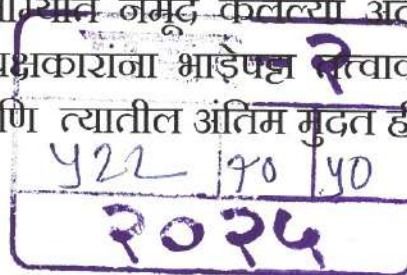 नमूद केलेल्या
पक्षकारांना भाडेपट्टा २
णि त्यातील अंतिम मुदत ही
५२२ १० ५०
२०२५